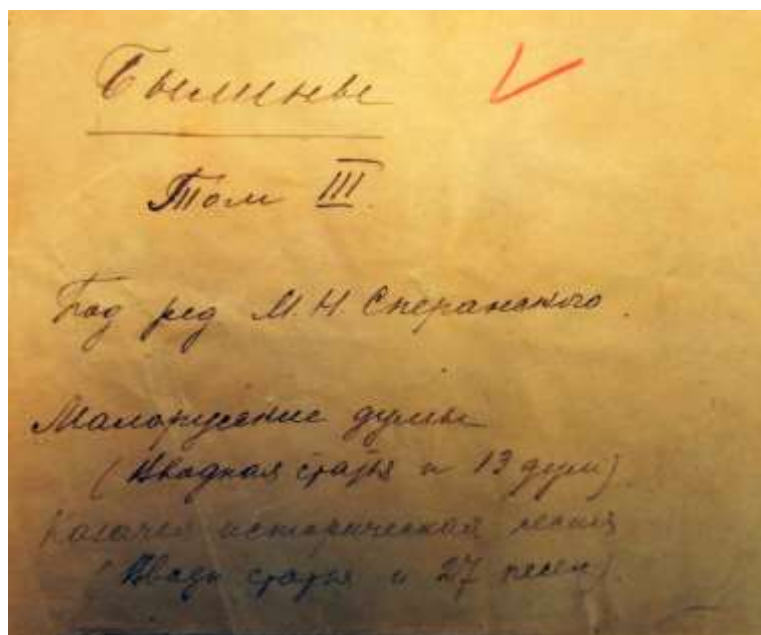 Былины
Том III.
Под ред М.Н. Сперанского.
Малорусские думы
(Вводная статья и 13 дум)
Казачья историческая песня
(Вводн статья и 27 песен).